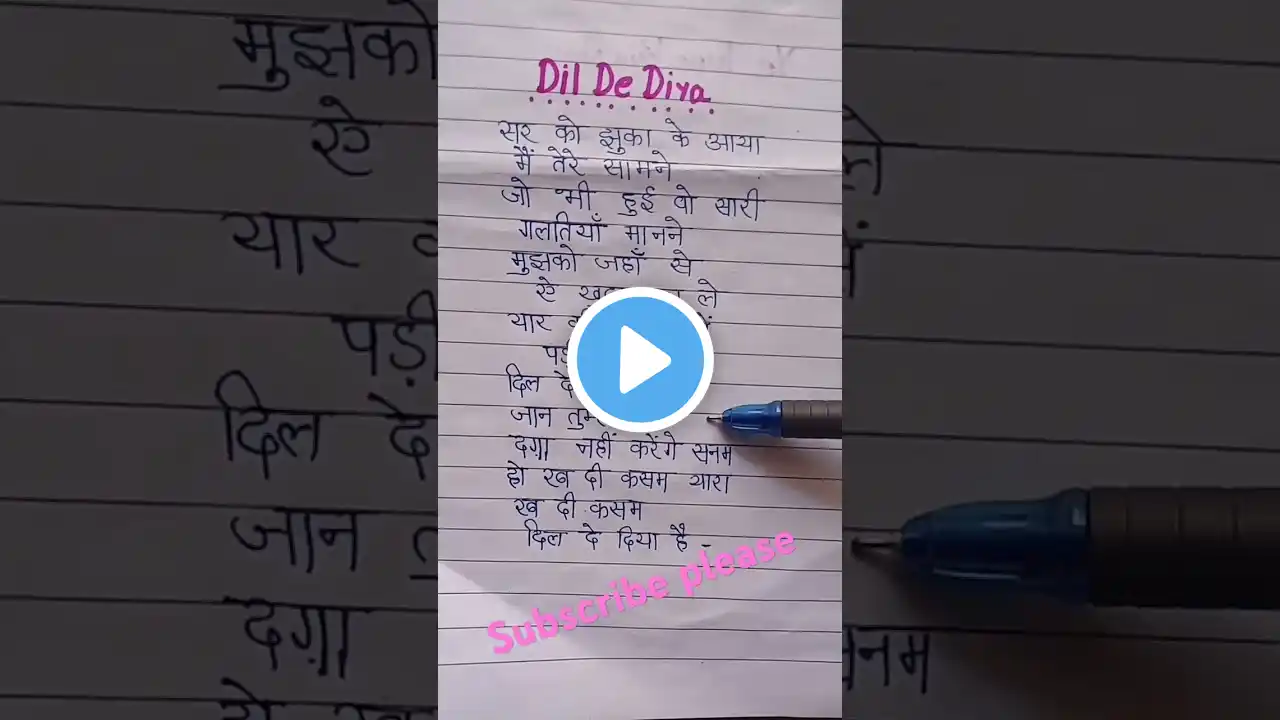 Dil De Diya
सर को झुका के आया
मैं तेरे सामने
जो भी हुई वो सारी
गलतियाँ मानने
मुझको जहाँ से
ऐ ले
यार
दिल दे
जान
दग़ा नहीं करेंगे सनम
हो रब दी कसम यारा
रब दी कसम
दिल दे दिया है -
Subscribe please